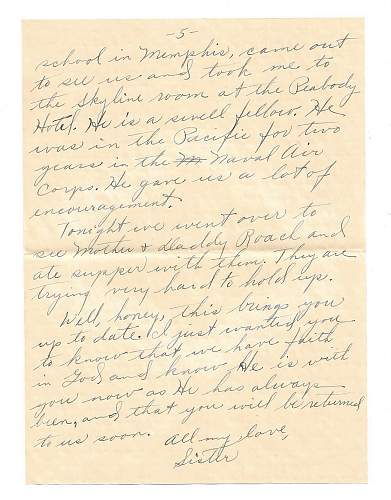 -5-
school in Memphis, came out
to see us and took me to
the Skyline room at the Peabody
Hotel. He is a swell fellow. He
was in the Pacific for two
years in the Naval Air
Corps. He gave us a lot of
encouragement.
Tonight we went over to
see Mother & Daddy Roach and
ate supper with them. They are
trying very hard to hold up.
Well, honey, this brings you
up to date. I just wanted you
to know that we have faith
in God and know He is with
you now as He has always
been, and that you will be returned
to us soon. All my love,
Sister